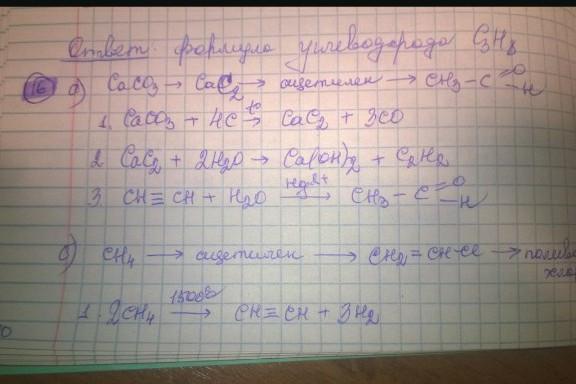 Ответ. формула углеводорода C3H8
16 а) CaCO3 → CaC2 → ацетилен → CH3-C=O-H
1. CaCO3 + 4C t° → CaC2 + 3CO
2. CaC2 + 2H2O → Ca(OH)2 + C2H2
3. CH≡CH + H2O Hg2+ → CH3-C=O-H
б) CH4 → ацетилен → CH2=CH-Cl → поливи
хло
1. 2CH4 1500° → CH≡CH + 3H2